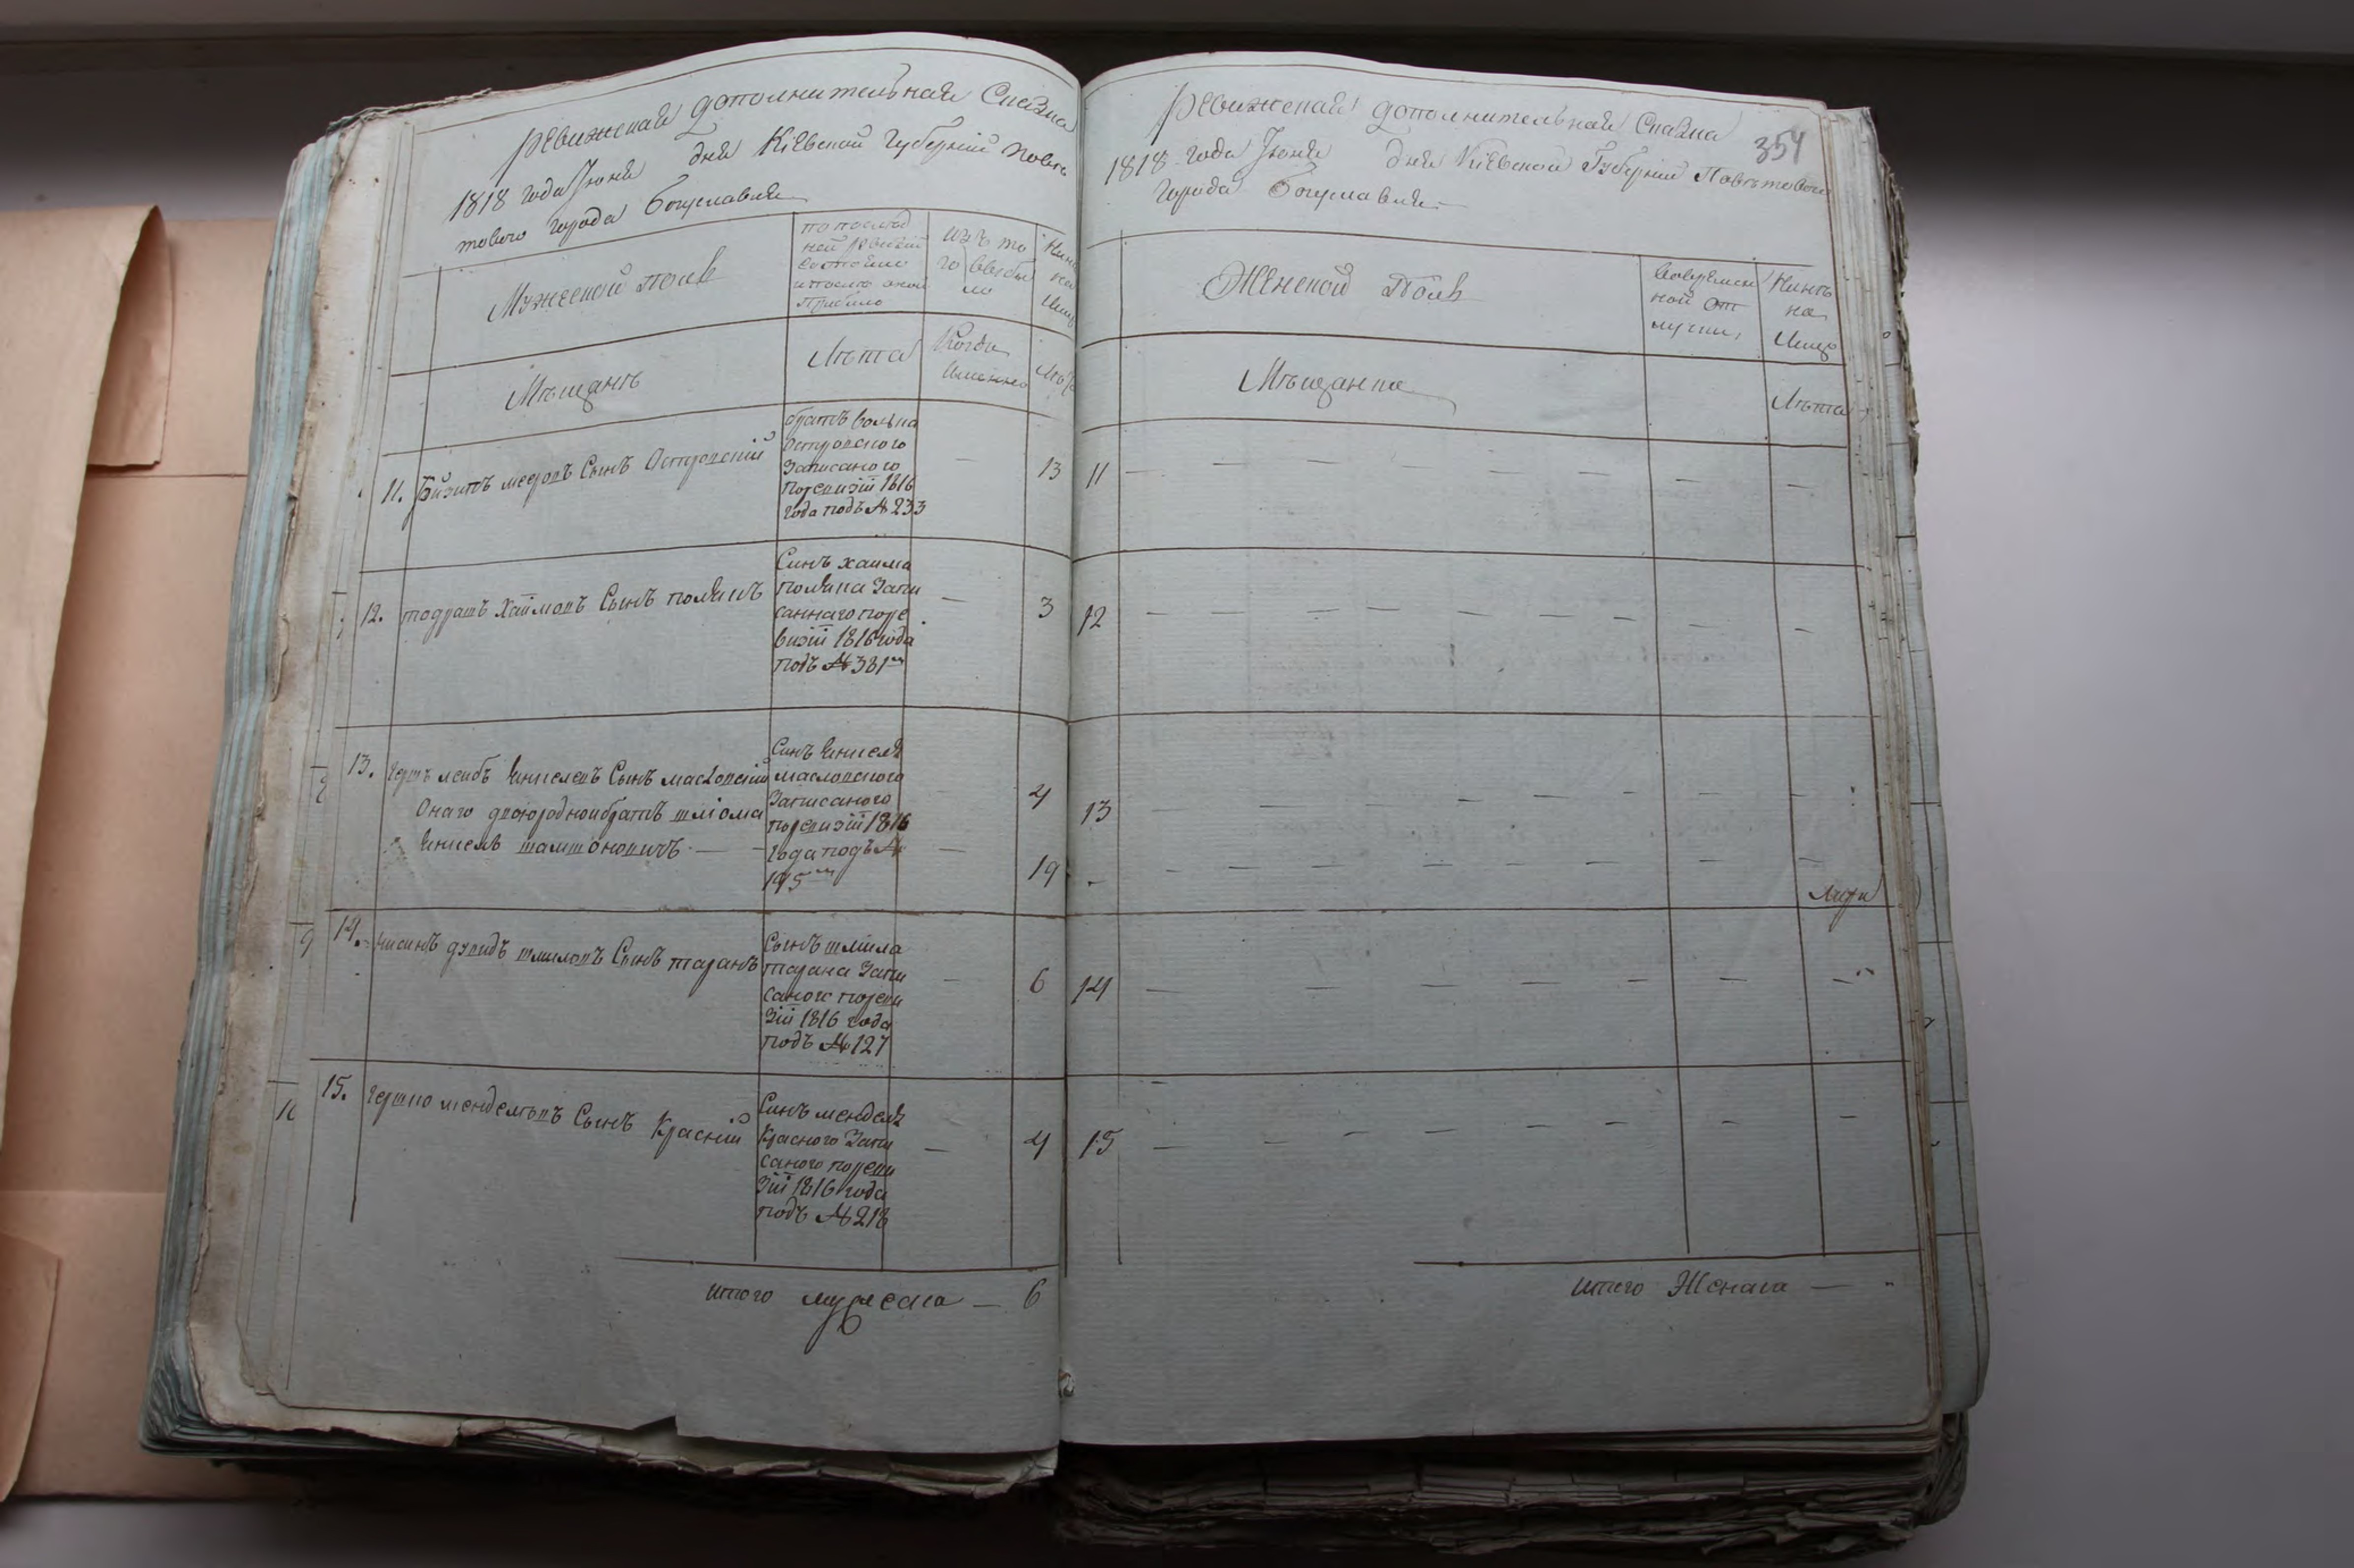 Ревижская дополнительная Сказка
1818 года Июня дня Кіевской Губерніи повѣ
тового города Богуславля
Мужеской полъ
по послед
ней ревизіи
состояло
и после оной
прибыло
изъ то
го выбы
ло
Нынѣ
на
лицо
Мѣщанъ
Лѣта
Когда
именно
Лѣта
11. сынъ Островскій
братъ
Островского
Записаного
по ревизіи 1816
года подъ № 233
—
13
12. Хаимовъ Сынъ полякъ
Сынъ хаима
поляка Запи
саннаго по ре
визіи 1816 года
подъ № 381м
—
3
13. Гершъ лейбъ Сынъ масловскій
Оного двоюродной братъ шліома
Сынъ
масловского
Записаного
по ревизіи 1816
года подъ №
195м
4
—
19
14. нисинъ дувидъ шмиловъ Сынъ таранъ
Сынъ шмила
тарана Запи
саного по реви
зіи 1816 года
подъ № 127
—
6
15. Гершко менделевъ Сынъ Красній
Сынъ менделя
Красного Запи
саного по реви
зіи 1816 года
подъ № 218
—
4
итого мужеска — 6
354
Ревижская дополнительная Сказка
1818 года Июня дня Кіевской Губерніи Повѣтового
города Богуславля
Женской Полъ
Во времен
ной от
лучки
Нынѣ
на
лицо
Мѣщанка
Лѣта
11 — — — — — — — —
12 — — — — — — — —
13 — — — — — — —
— — — — — — — —
14 — — — — — — — —
15 — — — — — — — —
итого Женска —